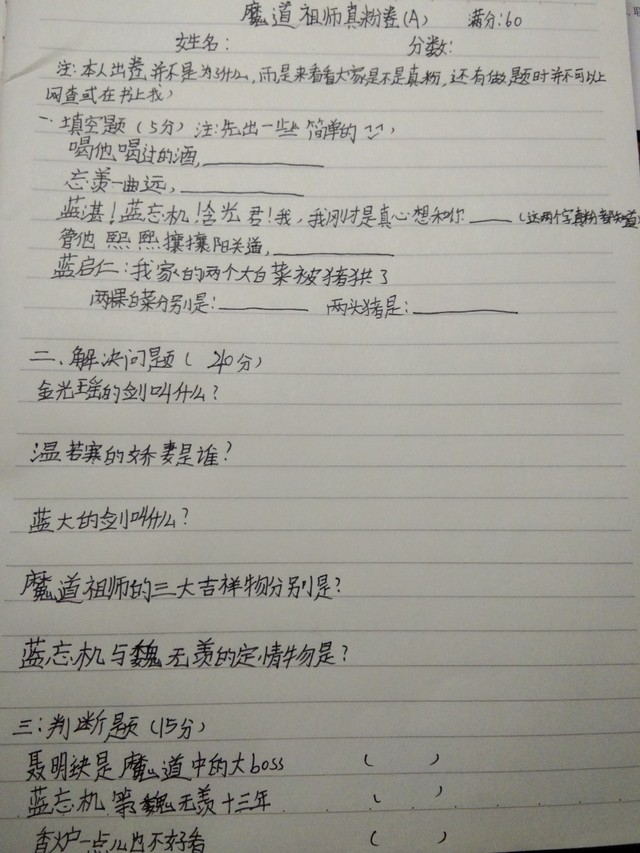 魔道祖师真粉卷(A) 满分:60
姓名: 分数:
注:本人出卷,并不是为,而是来看看大家是不是真粉,还有做题时并不可以
网查或在书上找)
一、填空题(5分) 注:先出一些简单的
喝他喝过的酒,
忘羡一曲远,
蓝湛!蓝忘机!含光君!我,我刚才是真心想和你 (这两个字真粉都知道
管他熙熙攘攘阳关道,
蓝启仁:我家的两个大白菜被猪拱了
两棵白菜分别是: 两头猪是:
二、解决问题( 240分)
金光瑶的剑叫什么?
温若寒的娇妻是谁?
蓝大的剑叫什么?
魔道祖师的三大吉祥物分别是?
蓝忘机与魏无羡的定情物是?
三:判断题(15分)
聂明玦是魔道中的大boss ( )
蓝忘机等魏无羡十三年 ( )
香炉一点儿也不好看 ( )